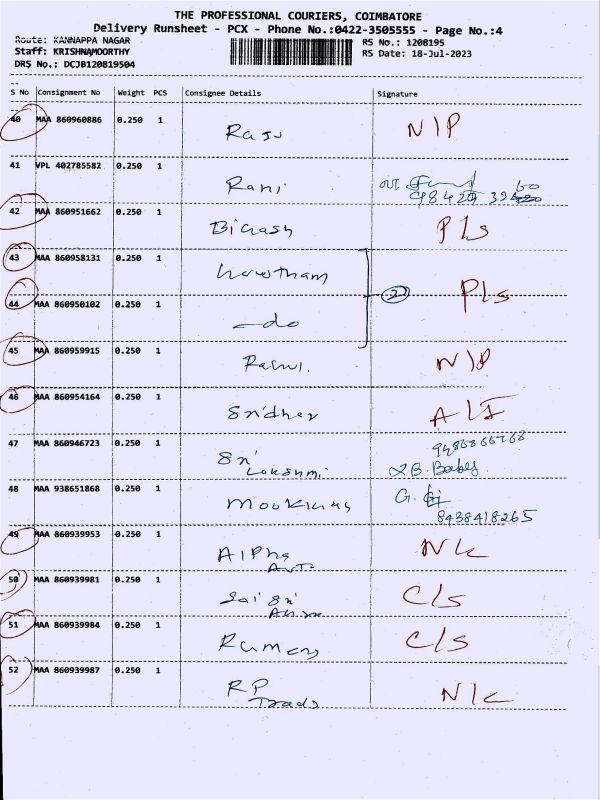 THE PROFESSIONAL COURIERS, COIMBATORE
Delivery Runsheet - PCX - Phone No.:0422-3505555 - Page No.:4
Route: KANNAPPA NAGAR RS No.: 1208195
Staff: KRISHNAMOORTHY RS Date: 18-Jul-2023
DRS No.: DCJB120819504
S No Consignment No Weight PCS Consignee Details Signature
40 MAA 860960886 0.250 1 Raju N/P
41 VPL 402785582 0.250 1 Rani
42 MAA 860951662 0.250 1 Bikash P/s
43 MAA 860958131 0.250 1 Gowtham
2 P/s
44 MAA 860950102 0.250 1 -do
45 MAA 860959915 0.250 1 N/P
46 MAA 860954164 0.250 1 Sridher A/I
47 MAA 860946723 0.250 1 Sri
Lakshmi
48 MAA 938651868 0.250 1 G.
8438418265
49 MAA 860939953 0.250 1 Alpha N/c
Auto
50 MAA 860939981 0.250 1 Sai Sri C/s
51 MAA 860939984 0.250 1 Raman C/s
52 MAA 860939987 0.250 1 RP N/c
Trads